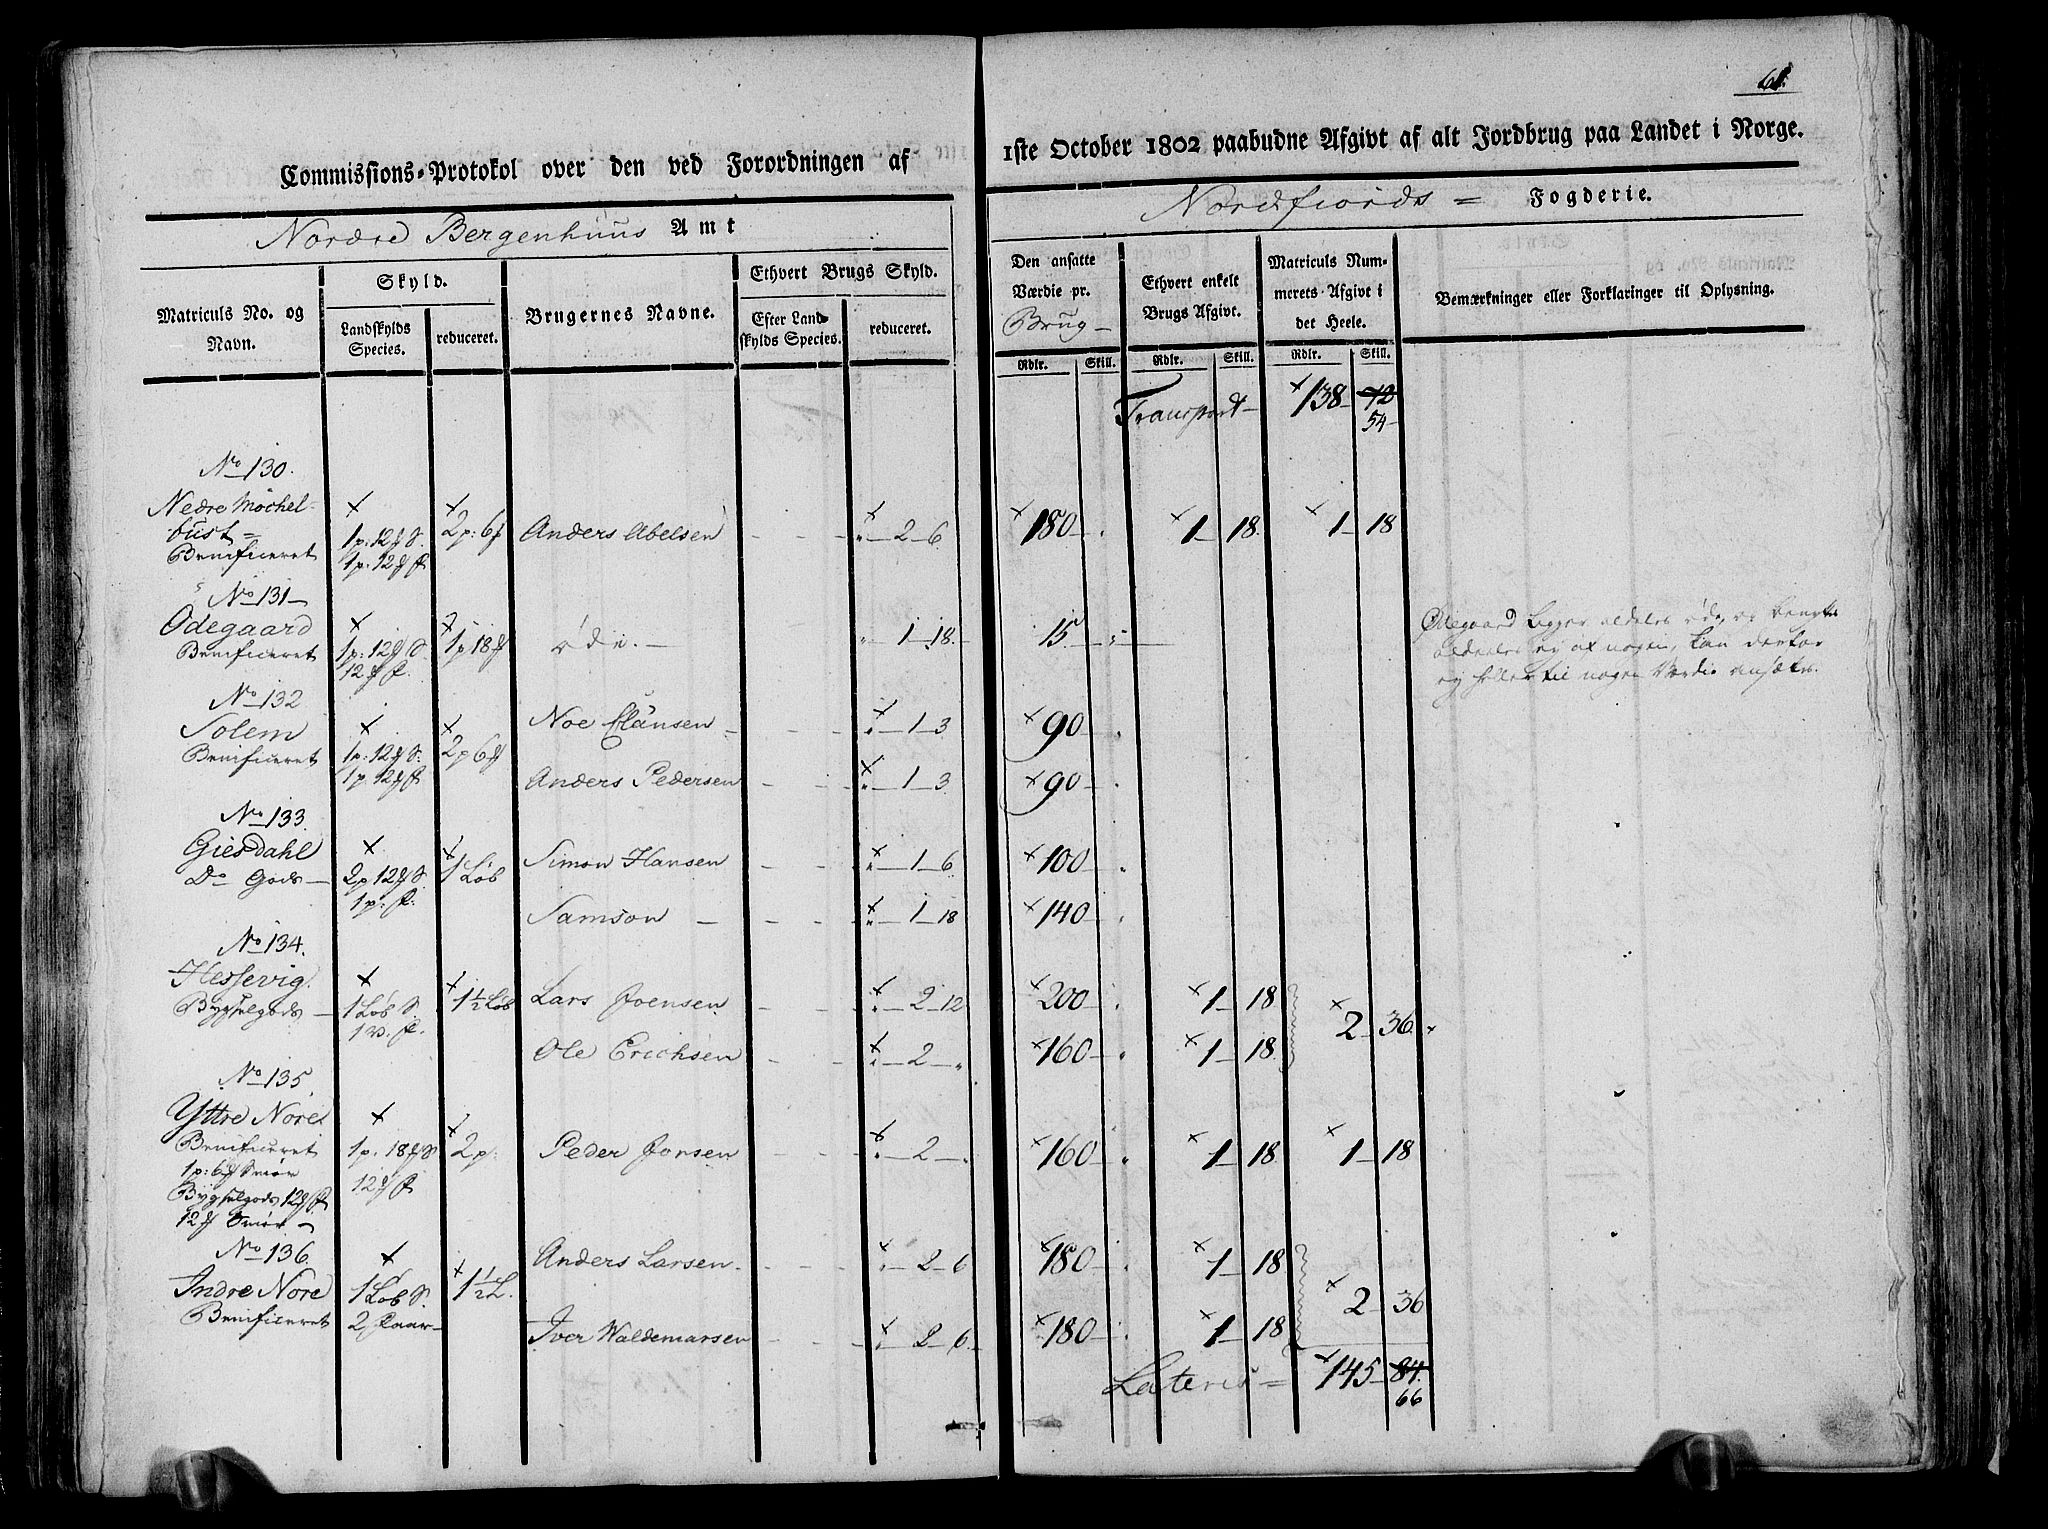 61.
Commissions-Protokol over den ved Forordningen af
1ste October 1802 paabudne Afgivt af alt Jordbrug paa Landet i Norge.
Nordre Bergenhuus Amt
Nordfiords = Fogderie.
Matriculs No. og Navn.
Skyld.
Landskylds Species.
reduceret.
Brugernes Navne.
Ethvert Brugs Skyld.
Efter Landskylds Species.
reduceret.
Den ansatte Værdie pr. Brug
Rdlr. Skill.
Ethvert enkelt Brugs Afgivt.
Rdlr. Skill.
Matriculs Nummerets Afgivt i det Heele.
Rdlr. Skill.
Bemærkninger eller Forklaringer til Oplysning.
Transport 138 12
54
No 130.
Nedre Mochel-
bust =
Benificeret
1p: 12 S.
1p: 12
2p: 6
Anders Abelsen
2 6
180
1 18
1 18
No 131
Odegaard
Benificeret
1p: 12
12
1p 18
øde.
1 18.
15
Ødegaard ligger aldeles øde og benyttes
aldeeles ey af nogen, kan derfor
ey heller til nogen Værdie ansættes.
No 132
Solem
Benificeret
1p: 12 S.
1p 12
2p 6
Noe Clausen
1 3
90
Anders Pedersen
1 3
90
No 133.
Giesdahl
Do Gods
2p 12 S.
1p:
1 Løb
Simon Hansen
1 6
100
Samson
1 18
140
No 134.
Hessevig.
Bygselgods
1 Løb S.
1½ Løb
Lars Joensen
2 12
200
1 18
2 36
Ole Erichsen
2
160
1 18
No 135
Yttre Nore
Benificeret
1p: 6 Smør
Bygselgods 12
12 Smør
1p. 18 S
12
2p:
Peder Jonsen
2
160
1 18
1 18
No 136.
Indre Nore
Benificeret
1 Løb S.
2
1½ L.
Anders Larsen
2 6
180
1 18
2 36
Iver Waldemarsen
2 6
180
1 18
Lateris = 145 84.
66